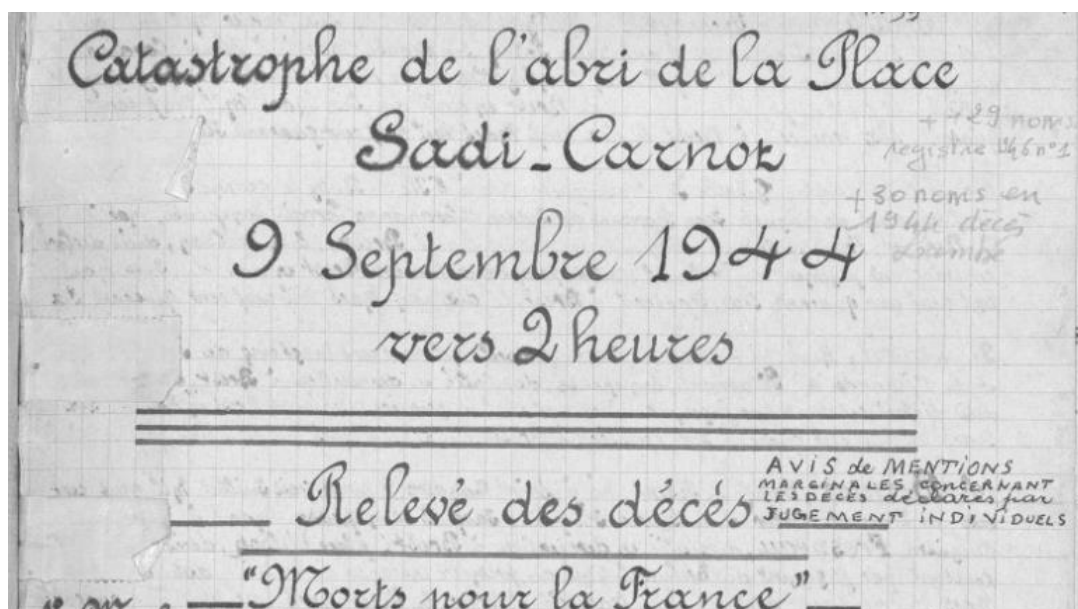 Catastrophe de l'abri de la Place
Sadi-Carnot
+ 29 noms
registre 1946 n°1
+ 30 noms en
1944 décès
9 Septembre 1944
vers 2 heures
Relevé des décés
AVIS de MENTIONS
MARGINALES CONCERNANT
LES DÉCÈS déclarés par
JUGEMENT INDIVIDUELS
"Morts pour la France"